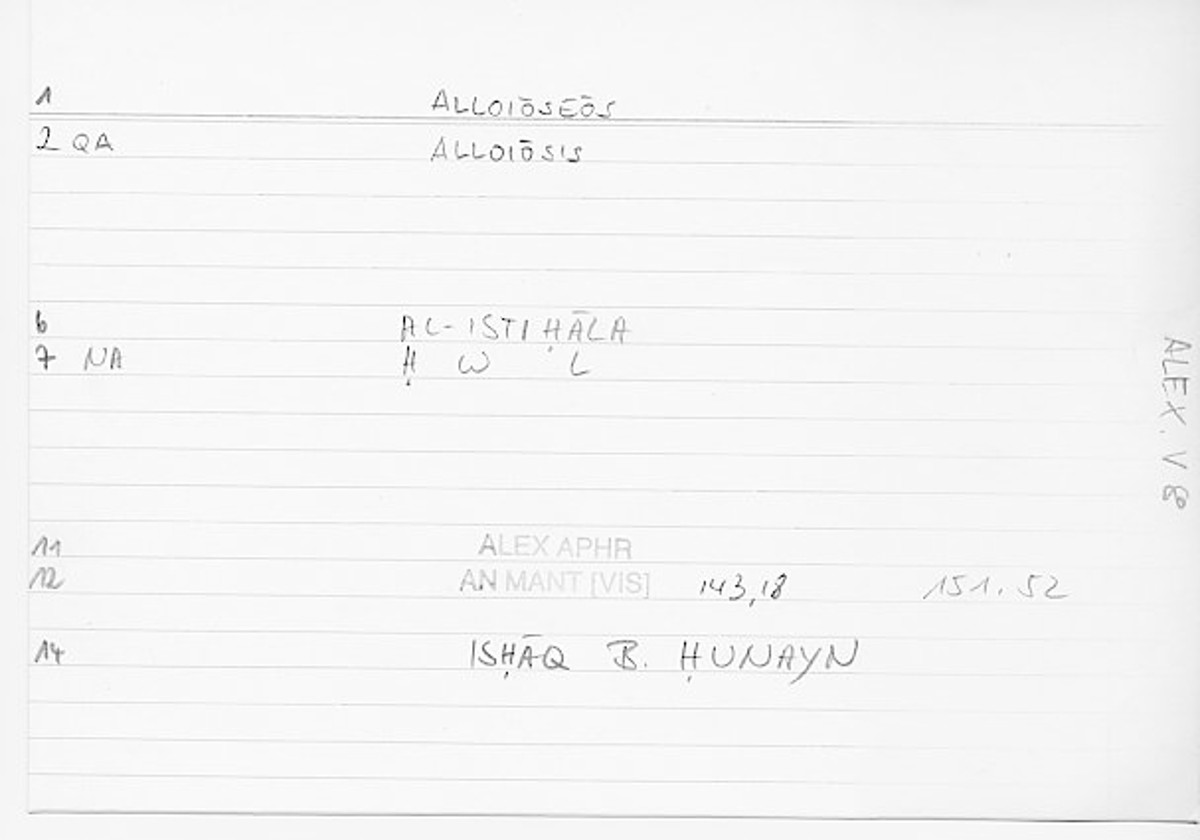 1 ALLOIŌSEŌS
2 QA ALLOIŌSIS
6 AL-ISTIḤĀLA
7 NA Ḥ W L
11 ALEX APHR
12 AN MANT [VIS] 143,18 151.52
14 ISḤĀQ B. ḤUNAYN
ALEX. V